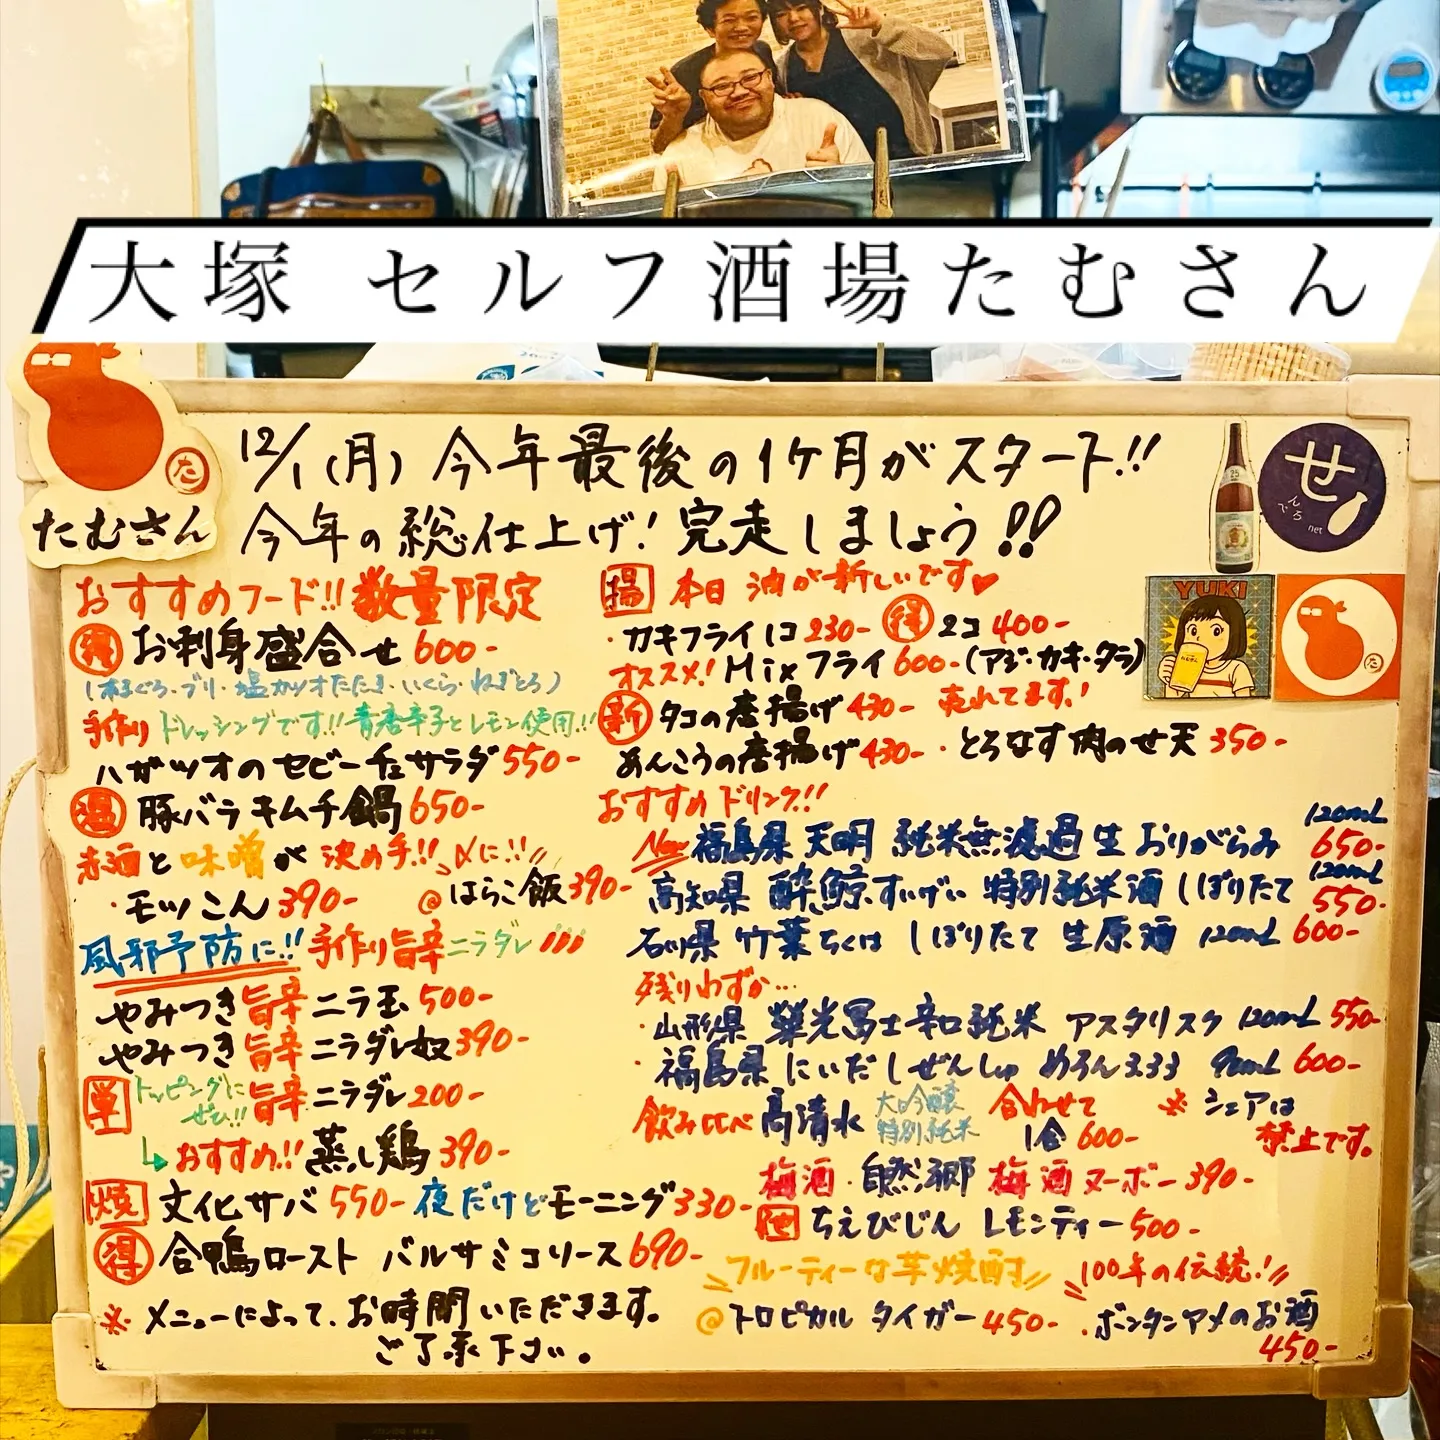 大塚 セルフ酒場たむさん
た
たむさん
12/1(月) 今年最後の1ヶ月がスタート!!
今年の総仕上げ!完走しましょう!!
せ
んべろ
net
YUKI
た
おすすめフード!!数量限定
得 お刺身盛合せ 600-
(本まぐろ・ブリ・塩カツオたたき・いくら・ねぎとろ)
手作り ドレッシングです!!青唐辛子とレモン使用!!
ハガツオのセビーチェサラダ 550-
温 豚バラキムチ鍋 650-
赤酒と味噌が決め手!! 〆に!!
・モツこん 390- @はらこ飯 390-
風邪予防に!! 手作り旨辛ニラダレ
やみつき旨辛ニラ玉 500-
やみつき旨辛ニラダレ奴 390-
単 トッピングに
ぜひ!! 旨辛ニラダレ 200-
おすすめ!! 蒸し鶏 390-
焼 文化サバ 550- 夜だけどモーニング 330-
得 合鴨ロースト バルサミコソース 690-
※ メニューによって、お時間いただきます。
ご了承下さい。
揚 本日 油が新しいです♥
・カキフライ1コ 230- 得 2コ 400-
オススメ! Mixフライ 600- (アジ・カキ・タラ)
新 タコの唐揚げ 430- 売れてます!
あんこうの唐揚げ 430- ・とろなす肉のせ天 350-
おすすめドリンク!!
New 福島県 天明 純米無濾過生 おりがらみ 120mL 650-
高知県 酔鯨 すいげい 特別純米酒 しぼりたて 120mL 550-
石川県 竹葉 ちくは しぼりたて 生原酒 120mL 600-
残りわずか…
・山形県 榮光冨士 辛口純米 アスタリスク 120mL 550-
・福島県 にいだしぜんしゅ めろん3.33 90mL 600-
飲み比べ 高清水 大吟醸
特別純米 合わせて
1合 600- ※ シェアは
禁止です。
梅酒・自然郷 梅酒ヌーボー 390-
他 ちえびじん レモンティー 500-
フルーティーな芋焼酎
@トロピカル タイガー 450-
100年の伝統!
・ボンタンアメのお酒
450-